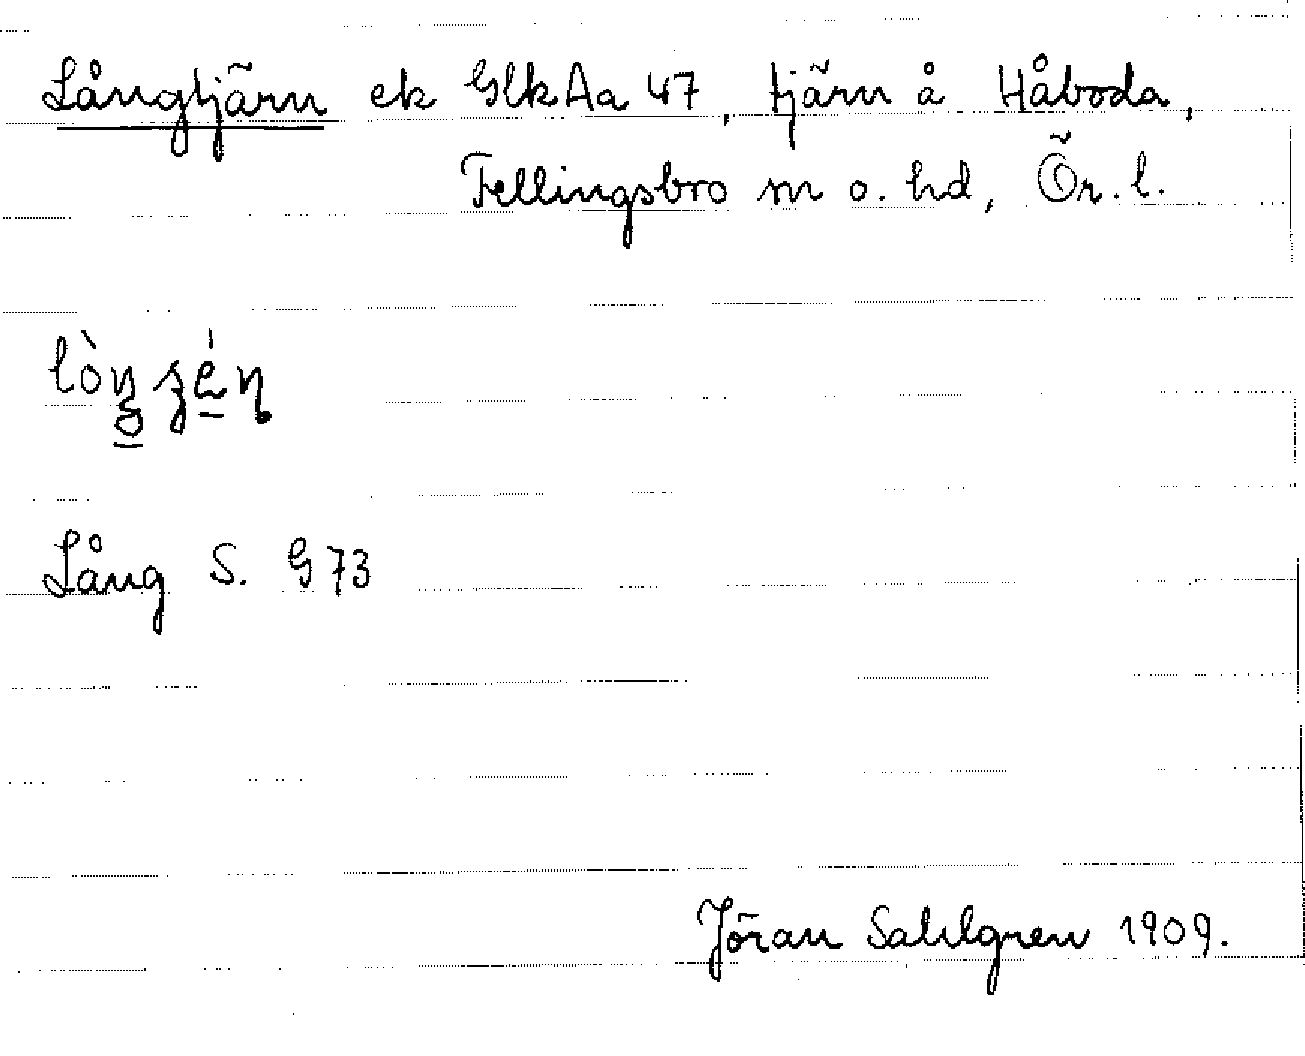 Långtjärn ek GlkAa 47, tjärn å Håboda,
Fellingsbro sn o. hd, Ör. l.
Lång S. G 73
Jöran Sahlgren 1909.